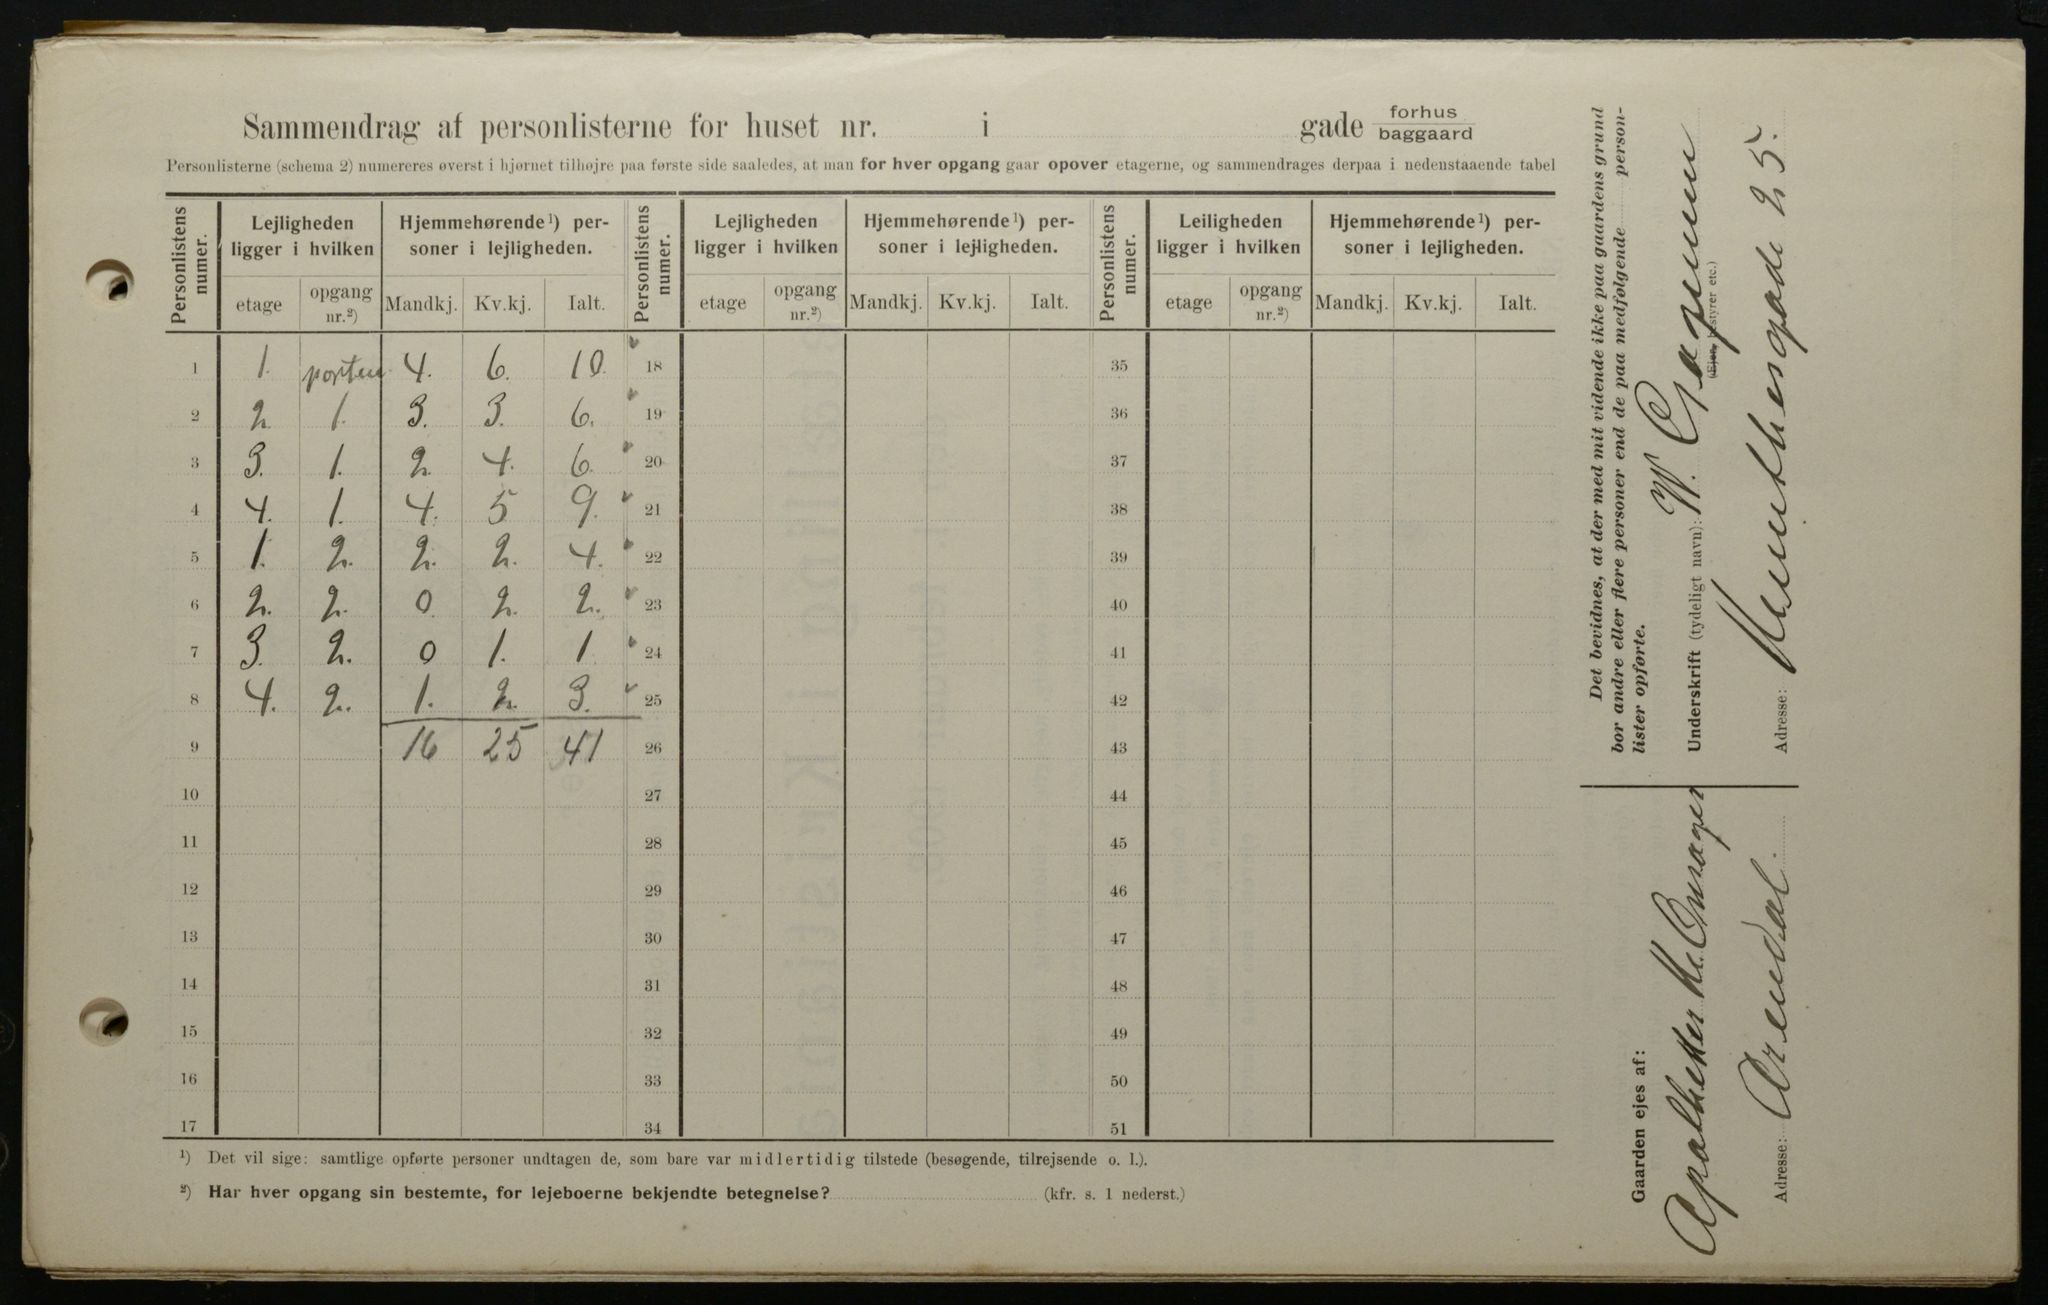 Sammendrag af personlisterne for huset nr. i gade forhus baggaard
Personlisterne (schema 2) numereres øverst i hjørnet tilhøjre paa første side saaledes, at man for hver opgang gaar opover etagerne, og sammendrages derpaa i nedenstaaende tabel
Personlistens numer. Lejligheden ligger i hvilken Hjemmehørende¹) personer i lejligheden. Personlistens numer. Lejligheden ligger i hvilken Hjemmehørende¹) personer i lejligheden. Personlistens numer. Leiligheden ligger i hvilken Hjemmehørende¹) personer i lejligheden.
etage opgang nr.²) Mandkj. Kv.kj. Ialt. etage opgang nr.²) Mandkj. Kv.kj. Ialt. etage opgang nr.²) Mandkj. Kv.kj. Ialt.
1 1. porten 4. 6. 10. 18 35
2 2. 1. 3. 3. 6. 19 36
3 3. 1. 2. 4. 6. 20 37
4 4. 1. 4. 5 9. 21 38
5 1. 2. 2. 2. 4. 22 39
6 2. 2. 0. 2. 2. 23 40
7 3. 2. 0 1. 1 24 41
8 4. 2. 1. 2. 3. 25 42
9 16 25 41 26 43
10 27 44
11 28 45
12 29 46
13 30 47
14 31 48
15 32 49
16 33 50
17 34 51
¹) Det vil sige: samtlige opførte personer undtagen de, som bare var midlertidig tilstede (besøgende, tilrejsende o. l.).
²) Har hver opgang sin bestemte, for lejeboerne bekjendte betegnelse? (kfr. s. 1 nederst.)
Det bevidnes, at der med mit vidende ikke paa gaardens grund
bor andre eller flere personer end de paa medfølgende person-
lister opførte.
Underskrift (tydeligt navn): W.
(Ejer, bestyrer etc.)
Adresse: Munthesgade 25.
Gaarden ejes af:
Apotheker
Adresse: Arendal.